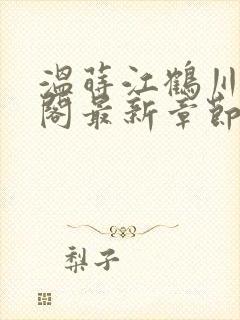 溫蒔江鶴川
閣最新章節
梨子